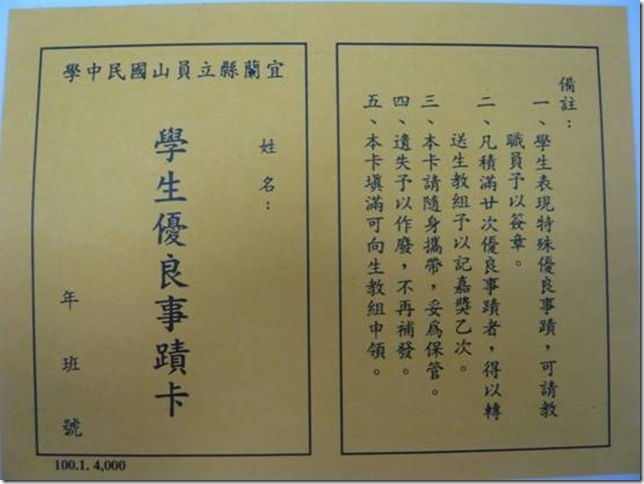 宜蘭縣立員山國民中學
姓名：
學生優良事蹟卡
年 班 號
100.1. 4,000
備註：
一、學生表現特殊優良事蹟，可請教
職員予以簽章。
二、凡積滿廿次優良事蹟者，得以轉
送生教組予以記嘉獎乙次。
三、本卡請隨身攜帶，妥為保管。
四、遺失予以作廢，不再補發。
五、本卡填滿可向生教組申領。